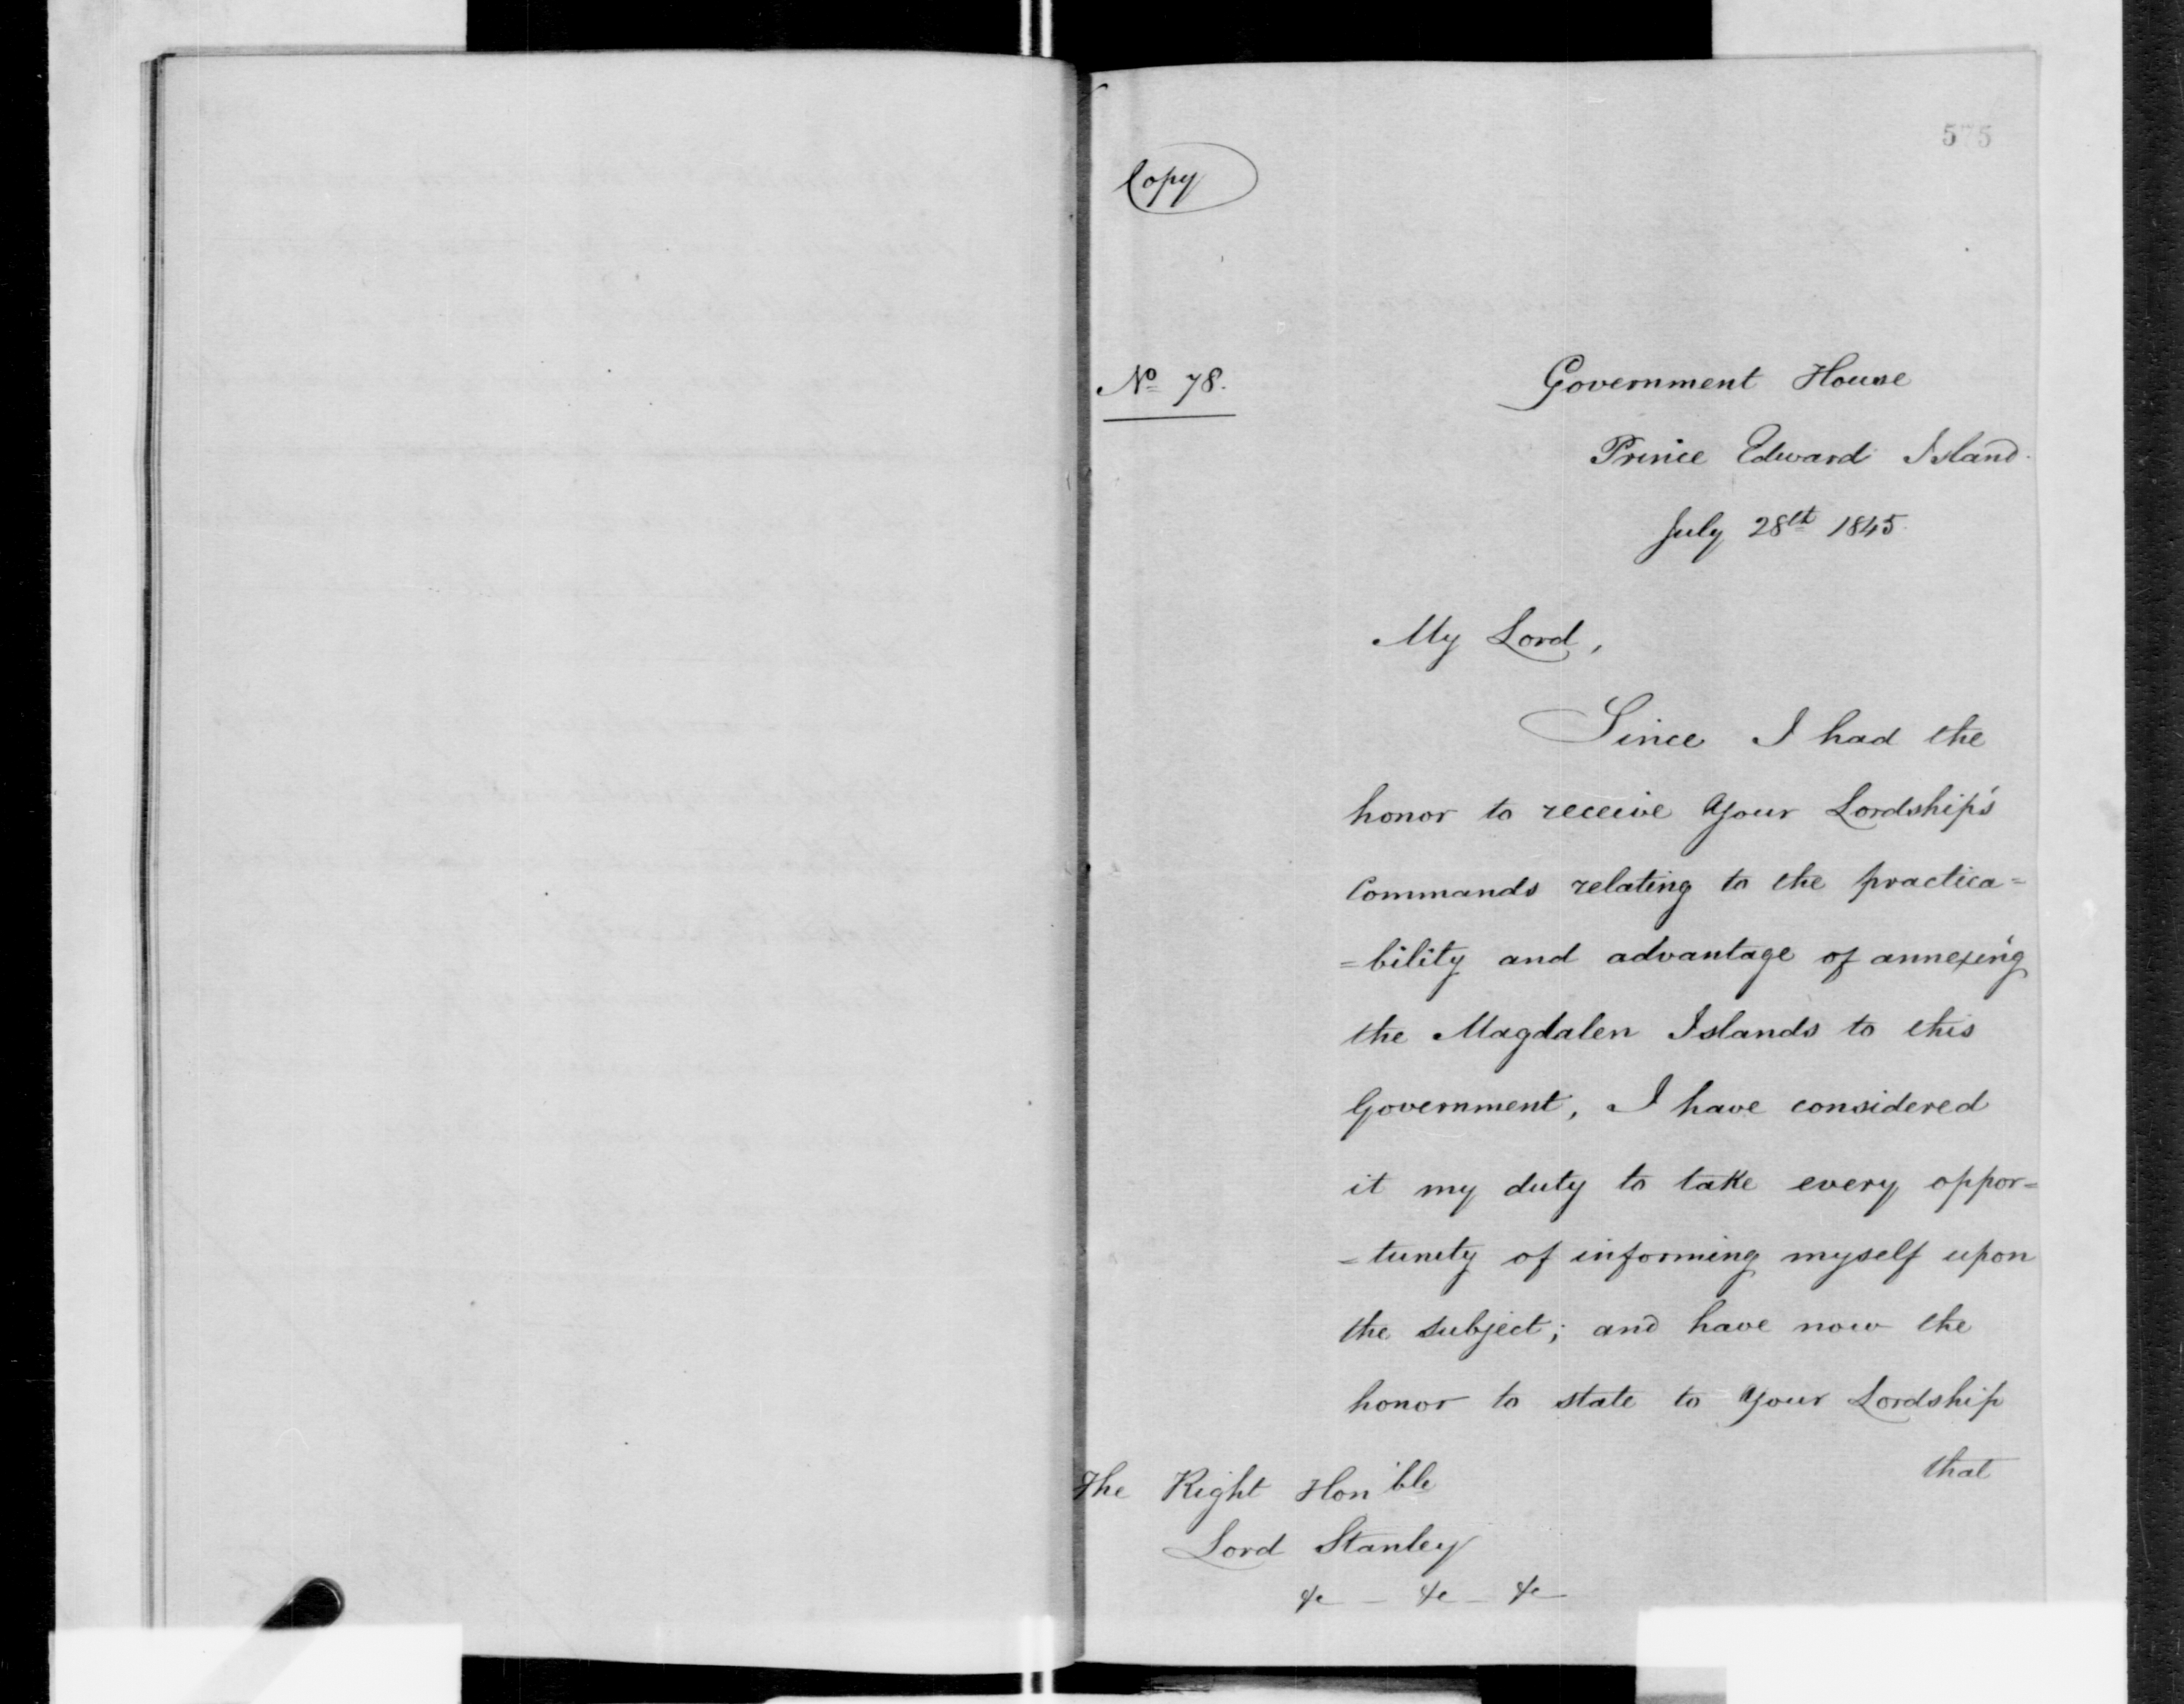 575
Copy
No 78.
Government House
Prince Edward Island.
July 28th 1845.
My Lord,
Since I had the
honor to receive Your Lordship's
Commands relating to the practica=
=bility and advantage of annexing
the Magdalen Islands to this
Government, I have considered
it my duty to take every oppor=
=tunity of informing myself upon
the subject; and have now the
honor to state to Your Lordship
that
The Right Honble
Lord Stanley
&c _ &c _ &c